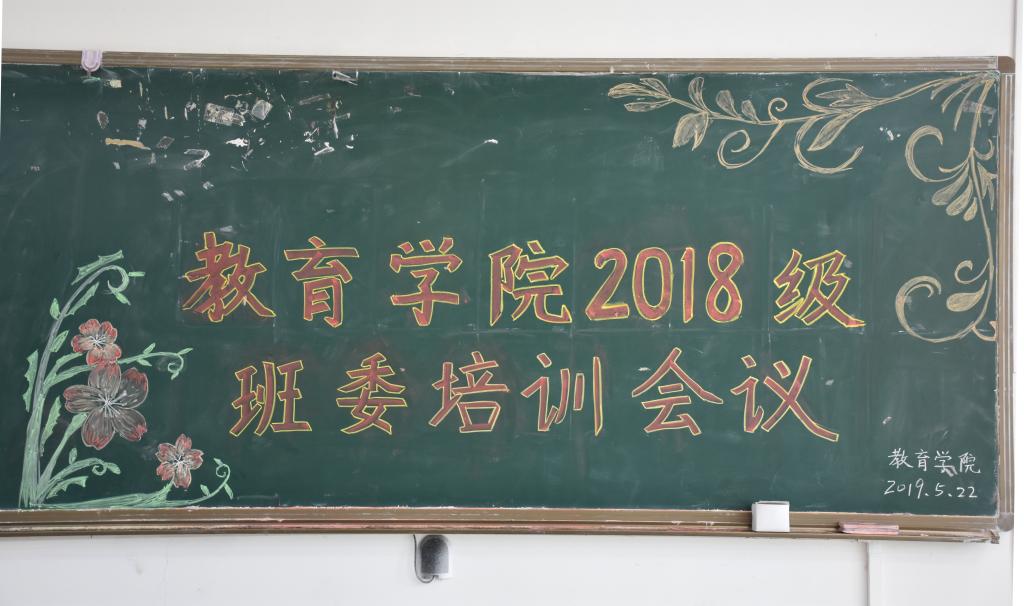 教育学院2018级
班委培训会议
教育学院
2019.5.22